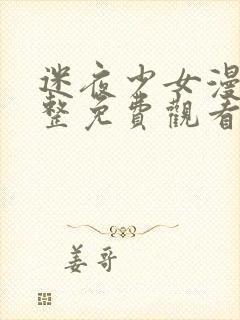 迷夜少女漫
整免費觀看
姜哥